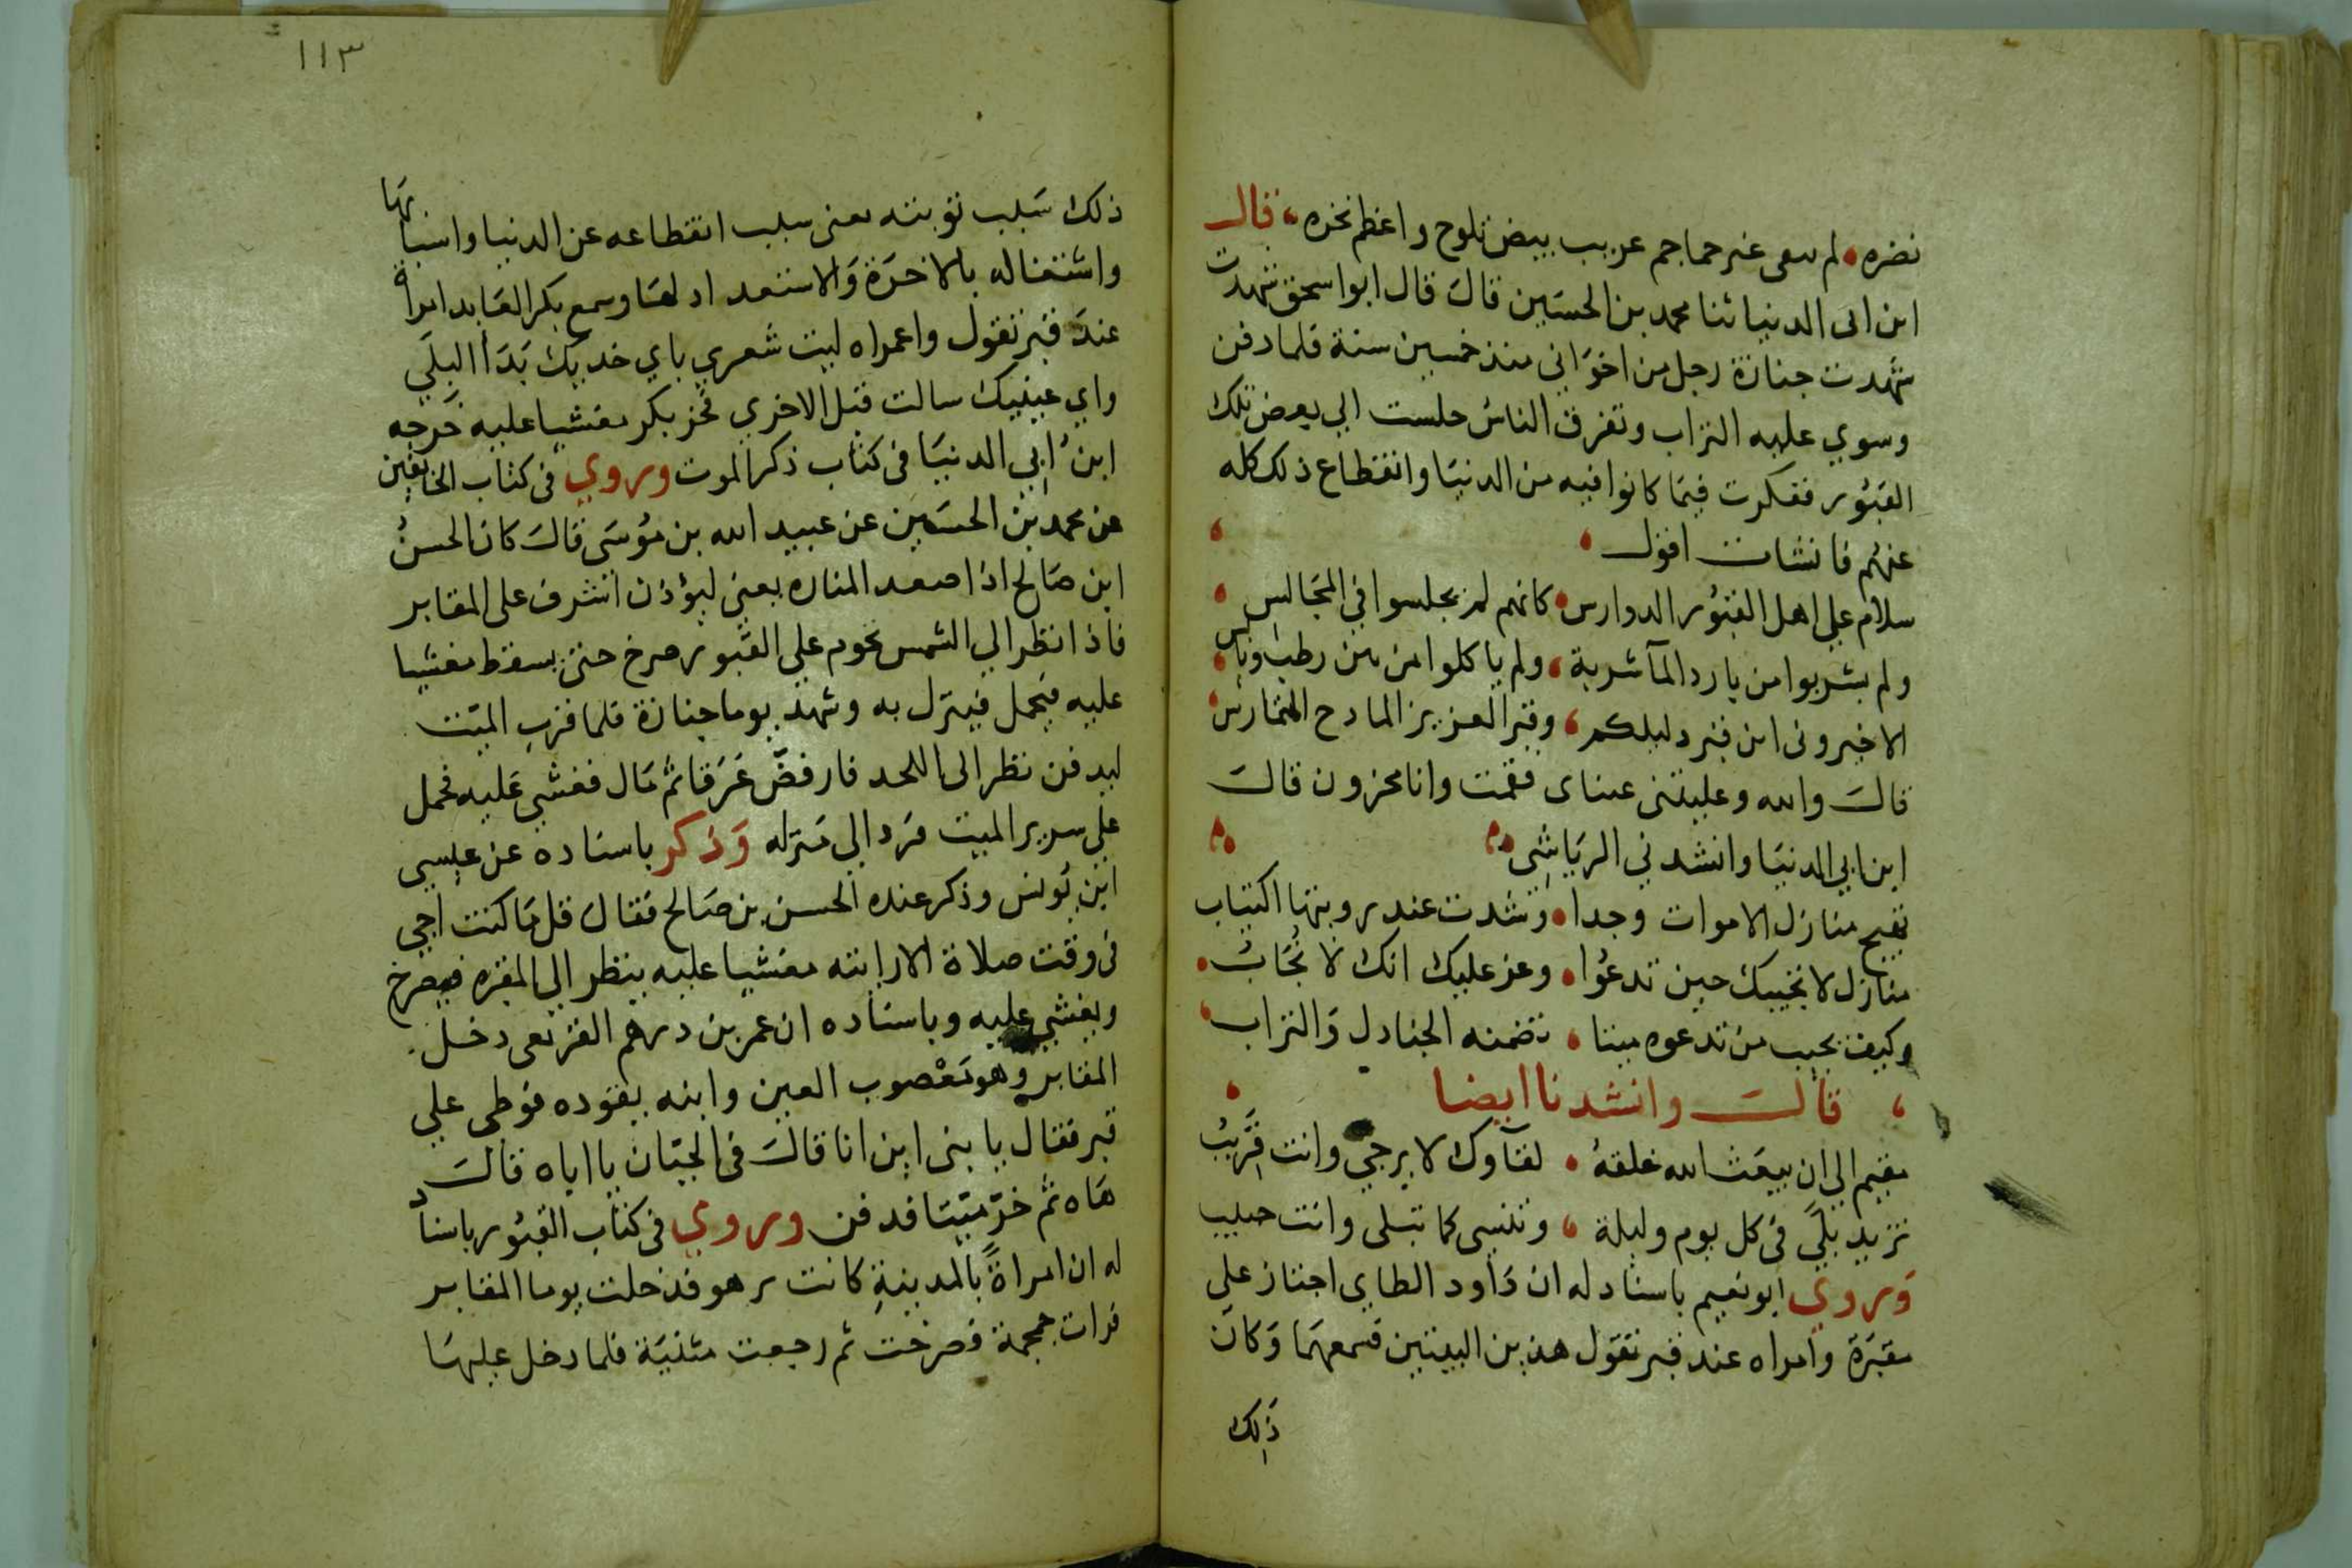 نضره لم سعى غير جماجم عريب بيض تلوح واعظم نخره قال
ابن ابى الدنيا ثنا محمد بن الحسين قال قال ابوا سحق شهدت
شهدت جنازة رجل من اخواني منذ خمسين سنة فلما دفن
وسوي عليه التراب وتفرق الناس جلست الي بعض تلك
القبور ففكرت فيما كانوا فيه من الدنيا وانقطاع ذلك كله
عنهم فانشات اقول
سلام علي اهل القبور الدوارس كانهم لم يجلسوا في المجالس
ولم يشربوا من بارد المآ شربة ولم ياكلوا من بين رطب ويابس
الا خبروني اين قبر دليلكم وقبر العزيز المادح
قال والله وغلبتنى عيناى فقمت وانا محزون قال
ابن ابي الدنيا وانشدني الرياشي
منازل الاموات وجدا عند رويتها اكتياب
منازل لا تجيبك حين تدعوا وعز عليك انك لا تجاب
وكيف يجيب من تدعوه ميتا تضمنه الجنادل والتراب
قال وانشدنا ايضا
مقيم الي ان يبعث الله خلقه لقآوك لا يرجي وانت قريب
تزيد بلي في كل يوم وليلة وتنسى كما تبلى وانت حبيب
وروي ابو نعيم باسناد له ان داود الطاي اجتاز علي
مقبرة وامراه عند قبر تقول هذين البيتين فسمعهما وكان
ذلك
١١٣
ذلك سبب توبته يعنى سبب انقطاعه عن الدنيا واسبابها
واشتغاله بالاخرة والاستعداد لها وسمع بكر العابد امراة
عند قبر تقول واعمراه ليت شعري باي خديك بدا البلي
واي عينيك سالت قبل الاخري فخر بكر مغشيا عليه خرجه
ابن ابي الدنيا فى كتاب ذكر الموت وروي فى كتاب الخايفين
عن محمد بن الحسين عن عبيد الله بن موسى قال كان الحسن
ابن صالح اذا صعد المناره يعني ليؤذن اشرف على المقابر
فاذا نظر الي الشمس تحوم علي القبور صرخ حتى يسقط مغشيا
عليه فيحمل فينزل به وشهد يوما جنازة فلما قرب الميت
ليدفن نظر الى اللحد فارفض عرقا ثم مال فغشي عليه فحمل
علي سرير الميت فرد الي منزله وذكر باسناده عن عيسي
ابن يونس وذكر عنده الحسن بن صالح فقال قل ما كنت اجي
فى وقت صلاة الا رايته مغشيا عليه ينظر الي المقبره فيصرخ
ويغشي عليه وباسناده ان عمر بن درهم القريعى دخل
المقابر وهو معصوب العين وابنه يقوده فوطى علي
قبر فقال يا بنى اين انا قال فى الجبان يا اباه قال
هاه ثم خر ميتا فدفن وروي فى كتاب القبور باسناد
له ان امراة بالمدينة كانت فدخلت يوما المقابر
فرات جمجمة فصرخت ثم رجعت منيبة فلما دخل عليها